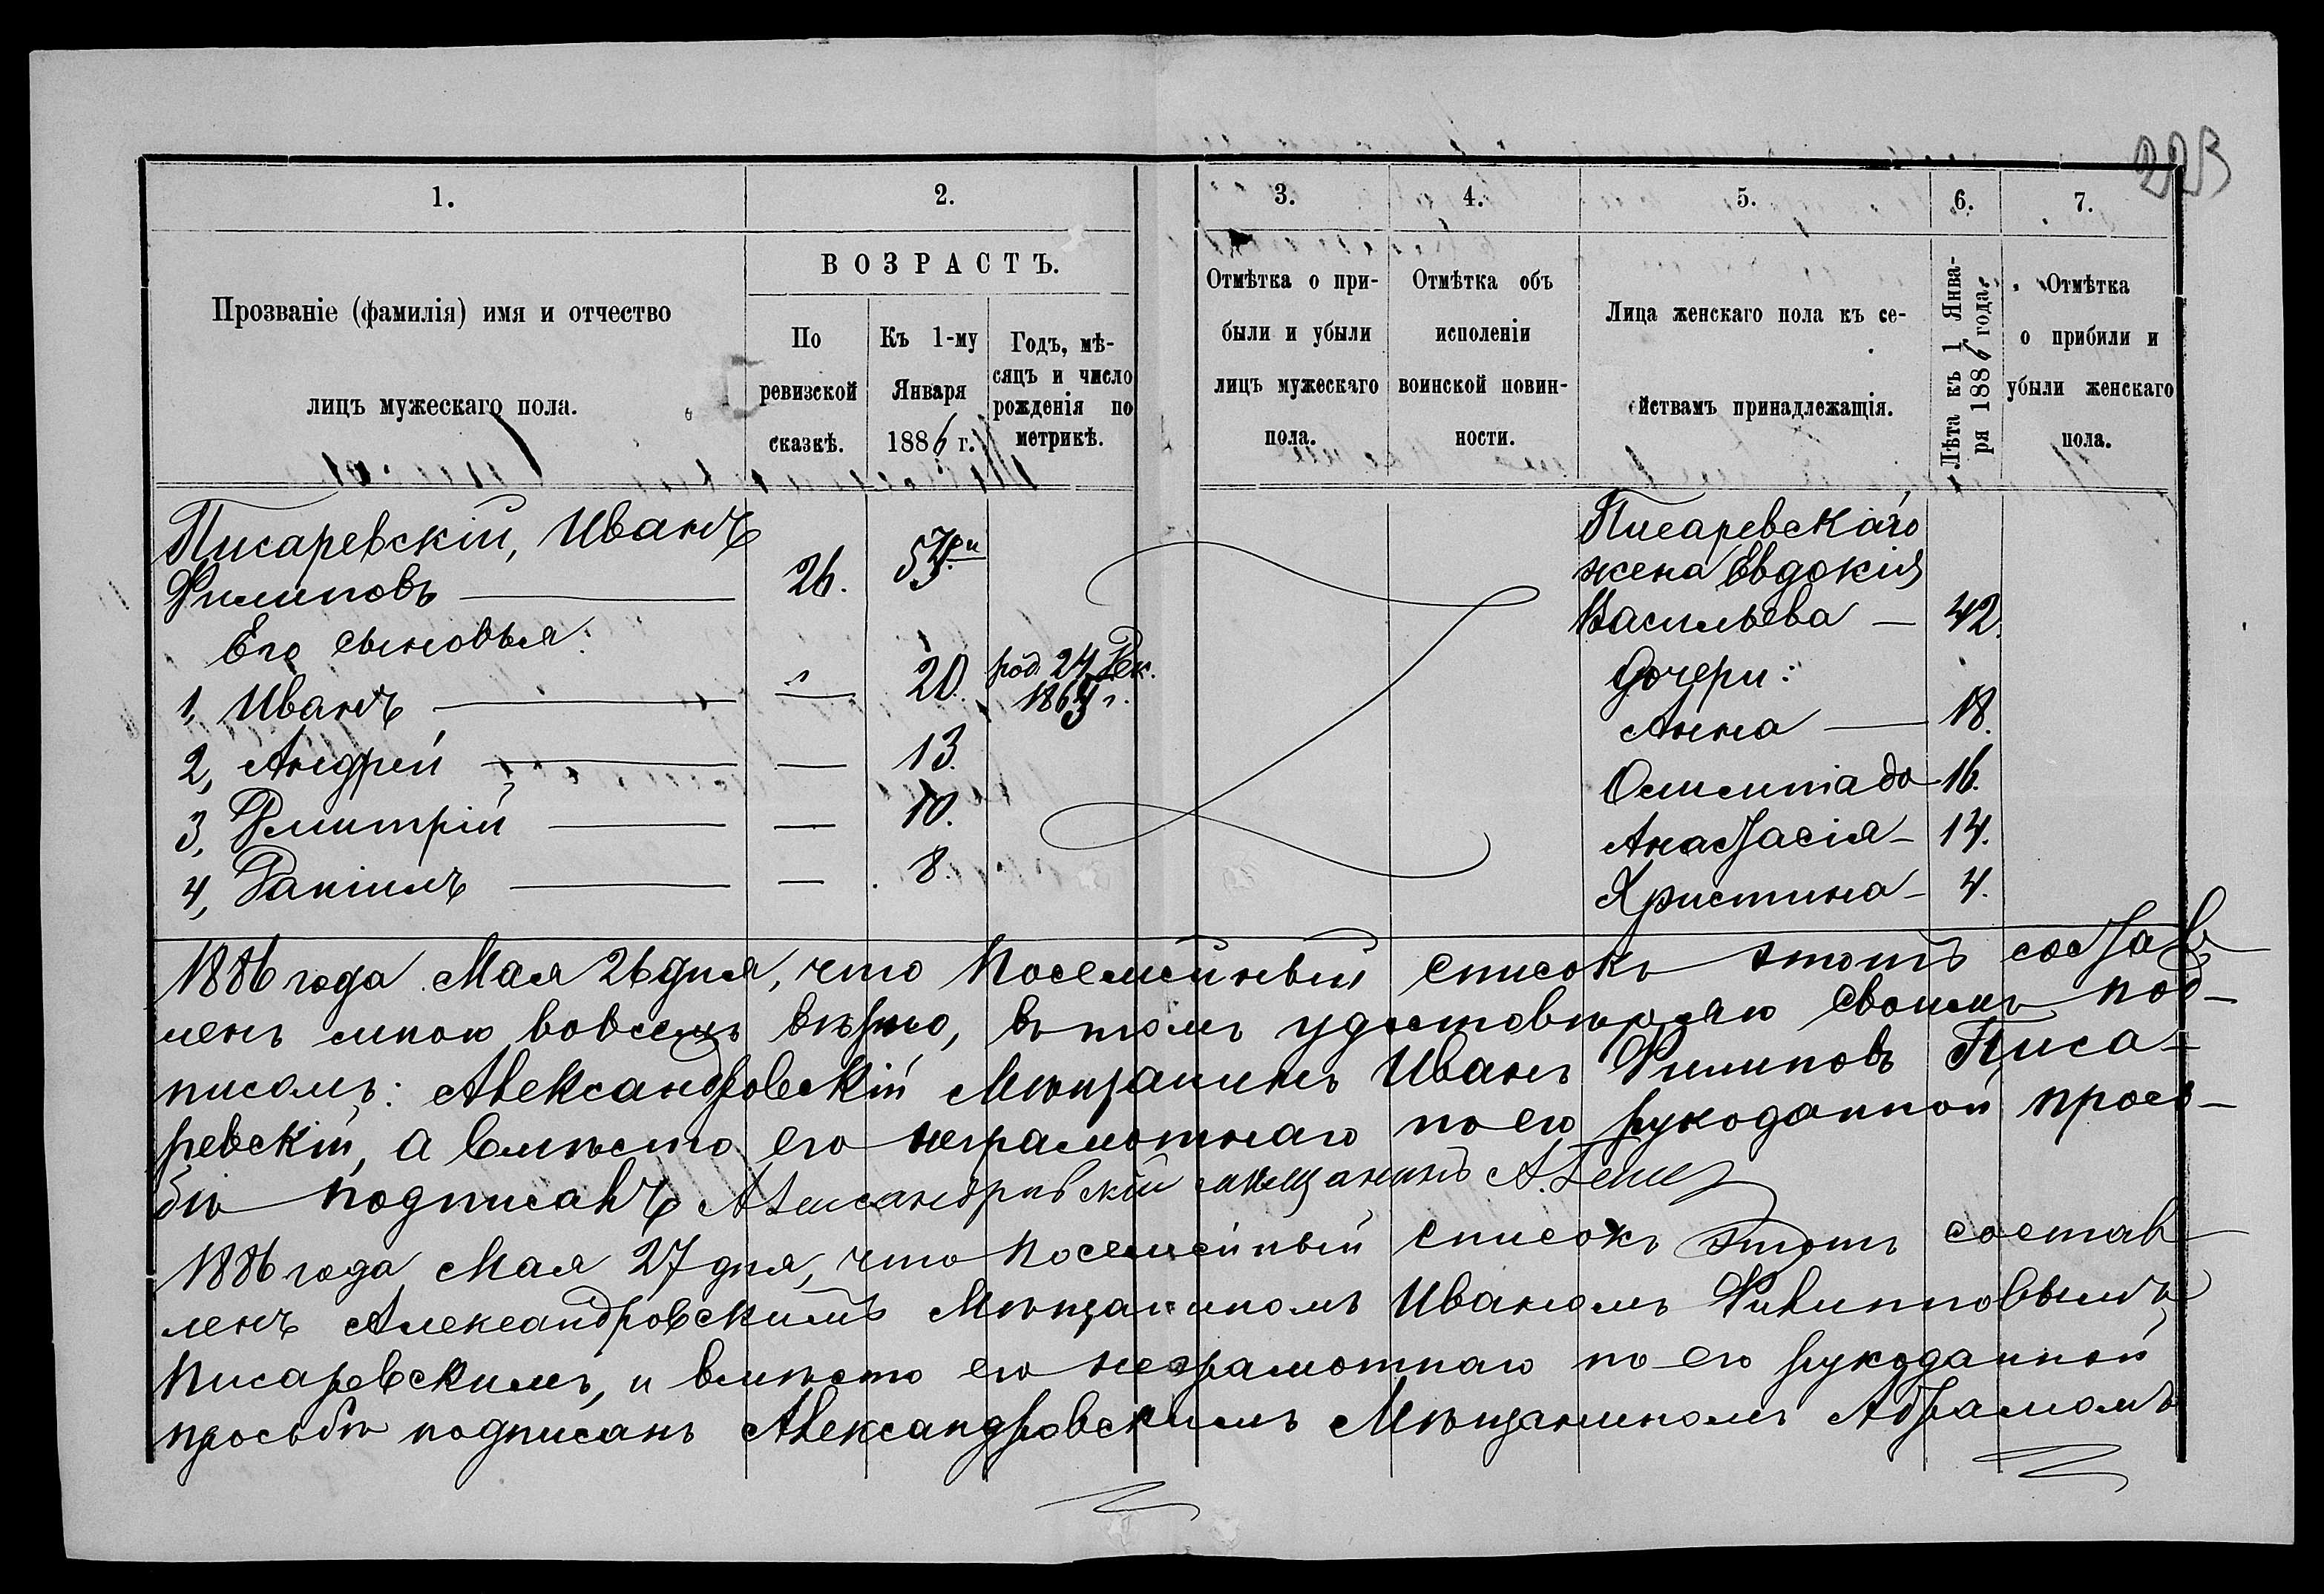 223
1. 2. 3. 4. 5. 6. 7.
Прозваніе (фамилія) имя и отчество
лицъ мужескаго пола.
ВОЗРАСТЪ.
По
ревизской
сказкѣ.
Къ 1-му
Января
1886 г.
Годъ, мѣ-
сяцъ и число
рожденія по
метрикѣ.
Отмѣтка о при-
были и убыли
лицъ мужескаго
пола.
Отмѣтка объ
исполеніи
воинской повин-
ности.
Лица женскаго пола къ се-
йствамъ принадлежащія.
Лѣта къ 1 Янва-
ря 1886 года.
Отмѣтка
о прибили и
убыли женскаго
пола.
Писаревскій, Иванъ
Филиповъ 26.
Его сыновья:
1, Иванъ 20. род. 24 Дек.
186 г.
2, Андрей — 13.
3, Дмитрій — 10.
4, Даніилъ — 8.
Писаревскаго
жена Евдокія
Васильева — 42.
дочери:
Анна — 18.
Олимпіада 16.
Анастасія — 14.
Христина — 4.
1886 года Мая 26 дня, что посемейный списокъ этотъ состав
ленъ мною вовсемъ вѣрно, въ томъ удостовѣряю своимъ под-
писомъ: Александровскій Мѣщанинъ Иванъ Филиповъ Писа-
ревскій, а вмѣсто его неграмотнаго по его рукоданной прось-
бѣ подписалъ Александровскій мѣщанинъ А.
1886 года Мая 27 дня, что посемейный списокъ этотъ состав
ленъ Александровскимъ Мѣщаниномъ Иваномъ Филипповымъ
Писаревскимъ, и вмѣсто его неграмотнаго по его рукоданной
просьбѣ подписанъ Александровскимъ Мѣщаниномъ Абрамомъ